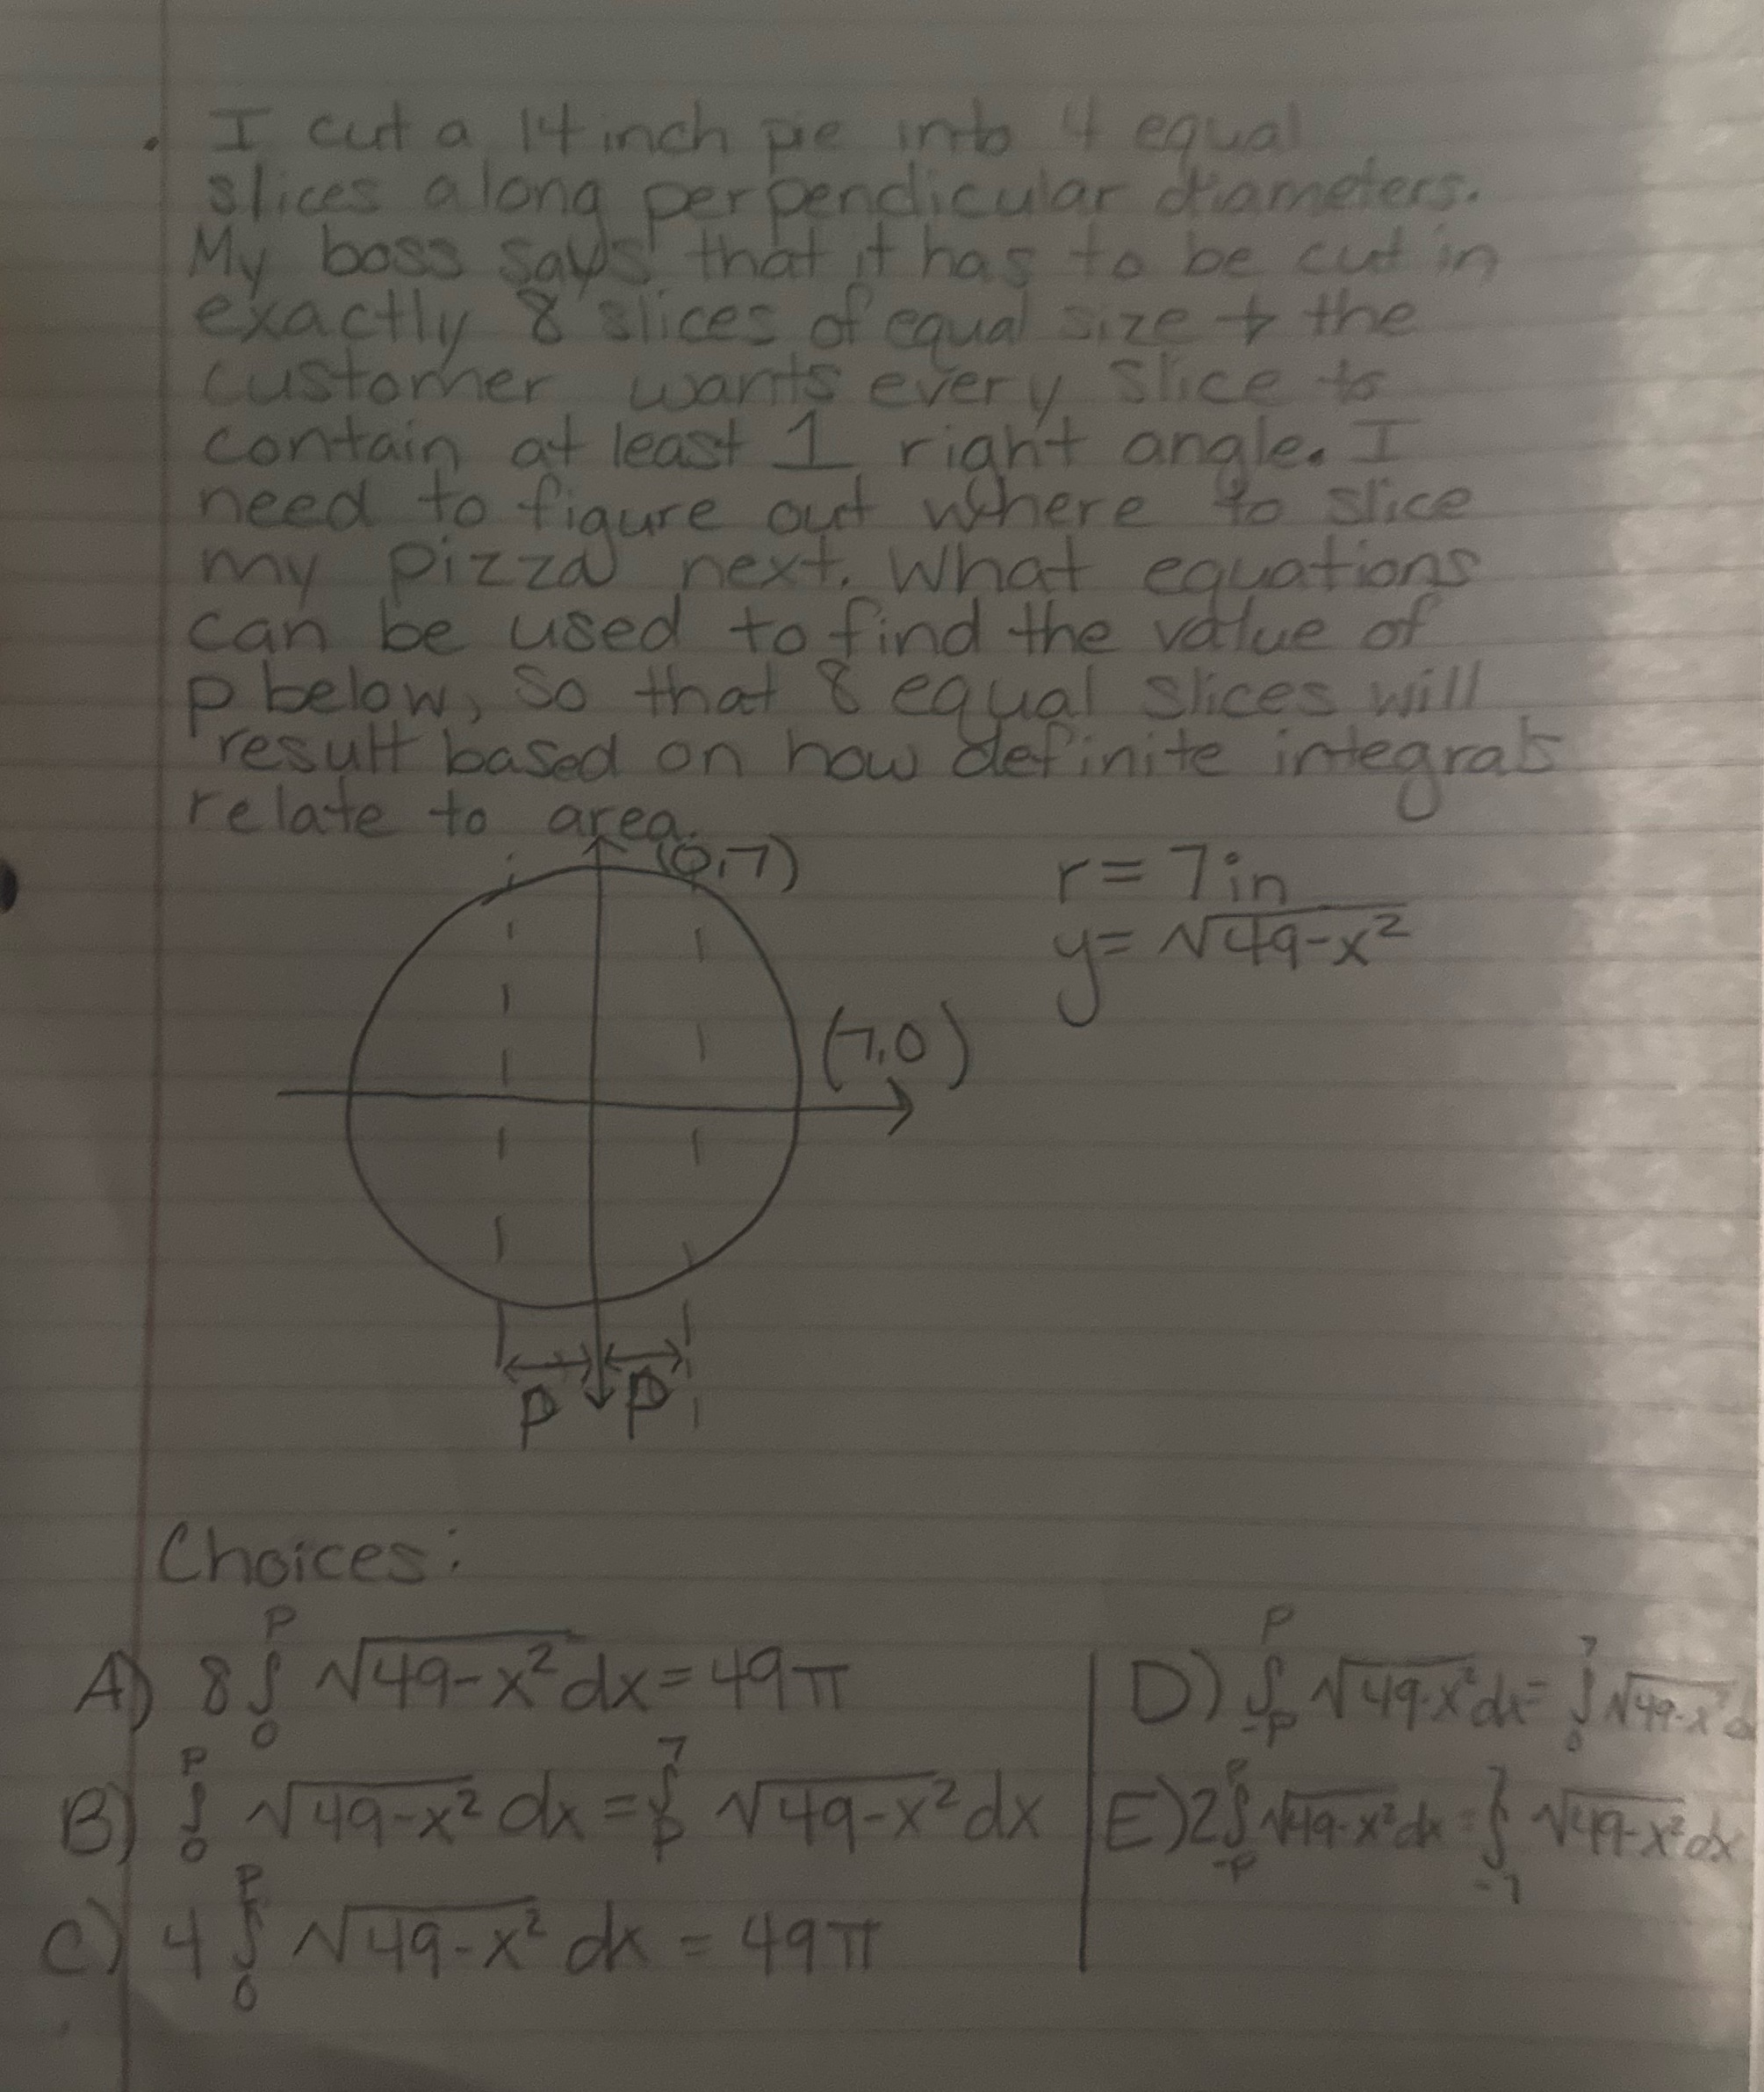 . I cut a 14 inch pie into 4 equal
slices along perpendicular diameters.
My boss says that it has to be cut in
exactly 8 slices of equal size + the
customer wants every slice to
contain at least 1 right angle. I
need to figure out where to slice
my pizza next. What equations
can be used to find the value of
p below, so that 8 equal slices will
result based on how definite integrals
relate to area.
(0,7)
r = 7in
y = √(49-x²)
(7,0)
p p
Choices:
A) 8 ∫₀ᵖ √(49-x²) dx = 49π
B) ∫₀ᵖ √(49-x²) dx = ∫ₚ⁷ √(49-x²) dx
C) 4 ∫₀ᵖ √(49-x²) dx = 49π
D) ∫₋ₚᵖ √(49-x²) dx = ∫₀⁷ √(49-x²) d
E) 2 ∫₋ₚᵖ √(49-x²) dx = ∫₋₇⁷ √(49-x²) dx